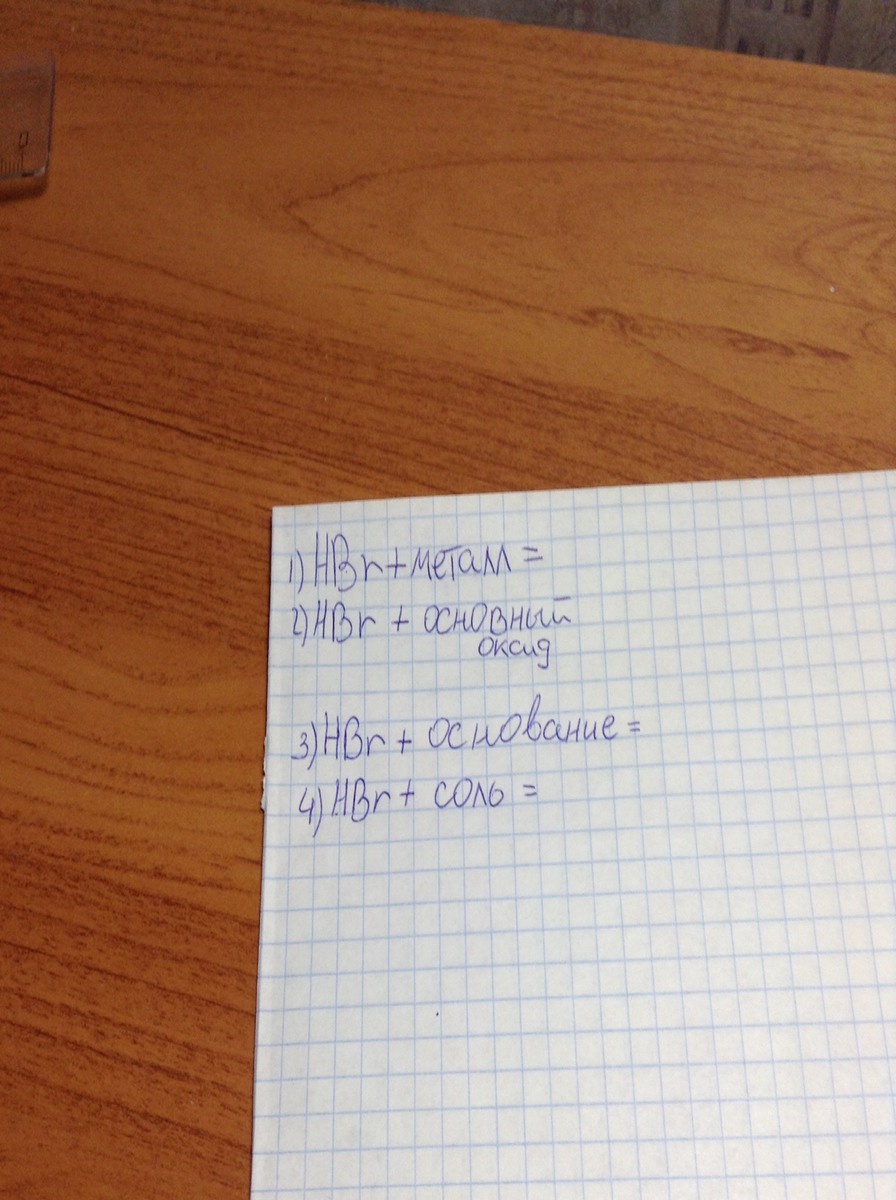 0
1) HBr + металл =
2) HBr + основный
оксид
3) HBr + основание =
4) HBr + соль =